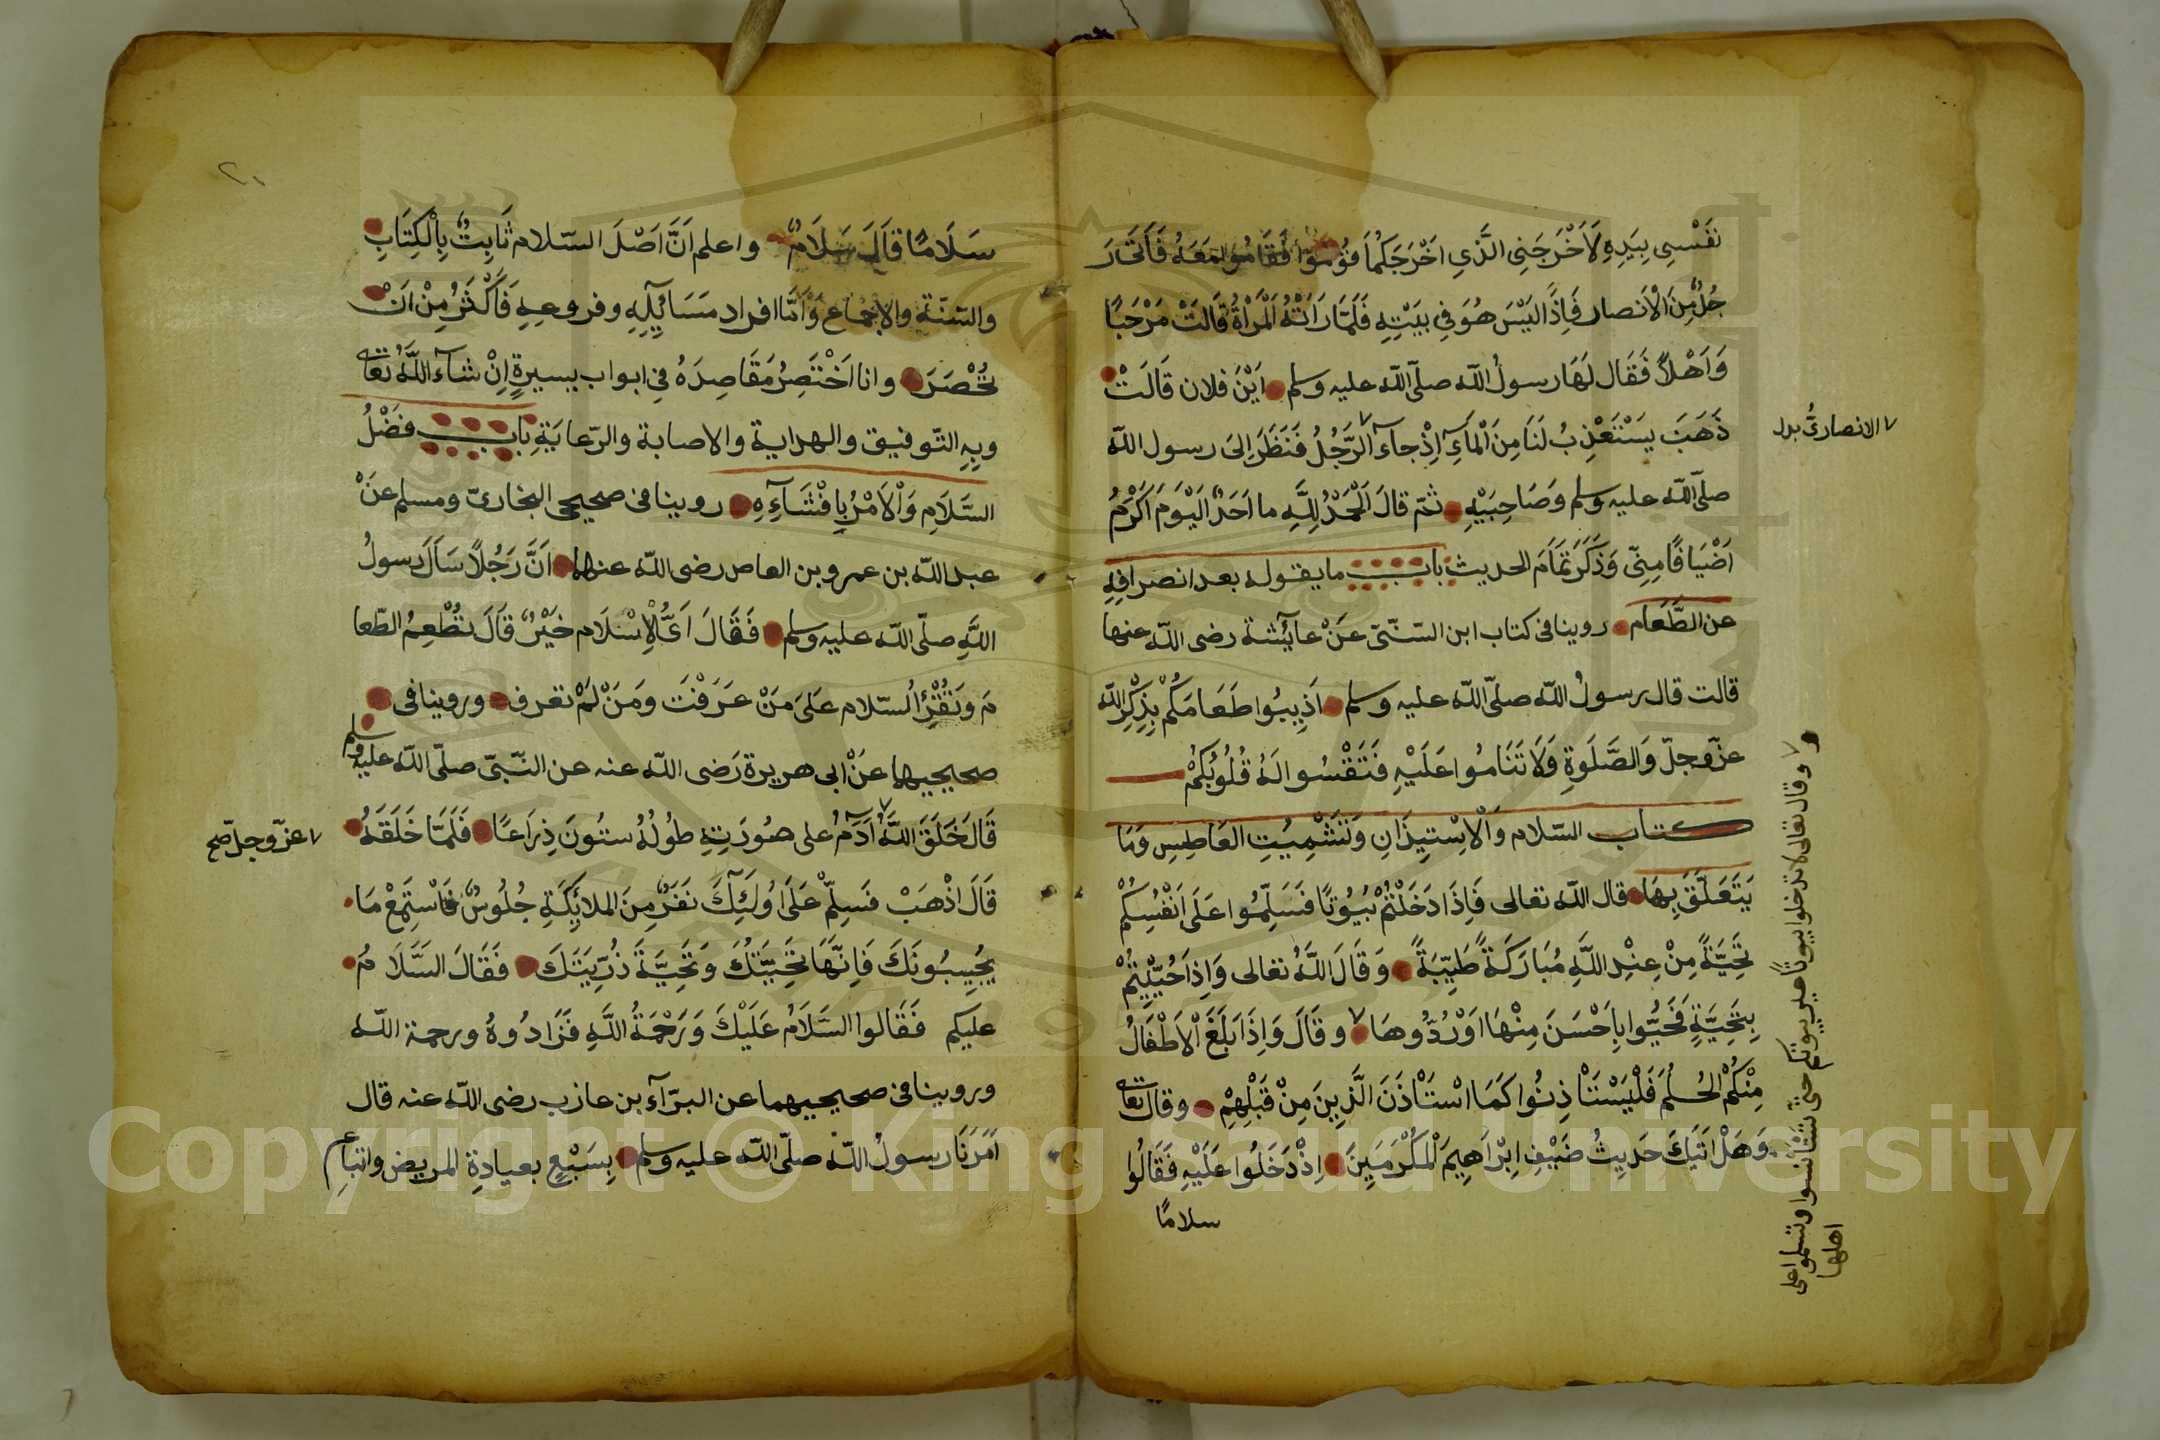 نَفْسِي بِيَدِهِ لَاَخْرَجَنِي الَّذِي اَخْرَجَكُمَا قُومُوا فَقَامُوا مَعَهُ فَاَتَى رَ
جُلًا مِنَ الْاَنصار فَاِذَا لَيْسَ هُوَ فِي بَيْتِهِ فَلَمَّا رَاَتْهُ الْمَرْاَةُ قَالَتْ مَرْحَبًا
وَاَهْلًا فَقَال لَهَا رسولُ اللّه صلّى اللّه عليه وسلم اَيْنَ فلان قَالَتْ
ذَهَبَ يَسْتَعْذِبُ لَنَا مِنَ الْمَاءِ اِذْ جاءَ الرَّجُلُ فَنَظَرَ اِلىَ رسول اللّه
٧ الانصاريُّ بدل
صلّى اللّه عليه وسلم وَصَاحِبَيْهِ ثمّ قالَ اَلْحَمْدُ لِلَّهِ ما اَحَدٌ الْيَوْمَ اَكْرَمُ
اَضْيَافًا مِنِّي وَذَكَرَ تَمَامَ الحديث باب ما يقوله بعد انصرافِهِ
عن الطَّعَام روينا فى كتاب ابن السّنّى عَنْ عايُشة رضى اللّه عنها
قالت قال رسولُ اللّه صلّى اللّه عليه وسلم اَذِيبُوا طَعَامَكُمْ بِذِكْرِ اللّه
عزّ وجلّ وَالصَّلَوةِ وَلَا تَنَامُوا عَلَيْهِ فَتَقْسُوا لَهُ قُلُوبُكُمْ
كتاب السّلام وَالْاِسْتِيذَانِ وَتَشْمِيْتِ العَاطِسِ وَمَا
يَتَعَلَّقَ بِهَا قال اللّه تعالى فَاِذَا دَخَلْتُمْ بُيُوتًا فَسَلِّمُوا عَلَى اَنْفُسِكُمْ
تَحِيَّةً مِنْ عِنْدِ اللَّهِ مُبَارَكَةً طَيِّبَةً وَقَالَ اللَّهُ تعالى وَاِذَا حُيِّيْتُمْ
بِتَحِيَّةٍ فَحَيُّوا بِاَحْسَنَ مِنْهَا اَوْ رُدُّوهَا ٧ وقَالَ وَاِذَا بَلَغَ الْاَطْفَالُ
مِنْكُمُ الحُلُمَ فَلْيَسْتَأْذِنُوا كَمَا اسْتَاْذَنَ الَّذِينَ مِنْ قَبْلِهِمْ وقال تعالى
وَهَلْ اَتَيكَ حَدِيثُ ضَيْفِ اِبْرَاهِيمَ الْمُكْرَمِينَ اِذْ دَخَلُوا عَلَيْهِ فَقَالُوا
سلامًا
٧ وقال تعالى لا تدخلوا بيوتًا غير بيوتكم حتى تستأنسوا وتسلموا على
اهلها
٢١
سَلَامًا قَالَ سَلَامٌ واعلم اَنَّ اَصْلَ السّلام ثَابِتٌ بِالْكِتَابِ
والسّنّة والاجماع وَاَمَّا افراد مَسَائِلِهِ وفروعِهِ فَاَكْثَرُ مِنْ اَنْ
تُحْصَرَ وانا اَخْتَصِرُ مَقَاصِدَهُ فِي ابواب يسيرةٍ اِنْ شاءَ اللَّهُ تعالى
وبِهِ التّوفيق والهداية والاصابة والرّعايَةِ باب فَضْلُ
السَّلَامِ وَالْاَمْرُ بِاِفْشَاءِهِ روينا فى صحيحى البخارىّ ومسلم عَنْ
عبد اللّه بن عمرو بن العاص رضى اللّه عنهما اَنَّ رَجُلًا سَاَلَ رسولُ
اللَّهِ صلّى اللّه عليه وسلم فَقَالَ اَىُّ الْاِسْلَام خَيْرٌ قَالَ تُطْعِمُ الطّعا
مَ وَتَقْرَأُ السّلام عَلىَ مَنْ عَرَفْتَ ومَنْ لَمْ تعرف وروينا فى
صحيحيهما عَنْ ابى هريرة رَضى اللّه عنه عن النّبىّ صلّى اللّه عليه وسلم
قَالَ خَلَقَ اللَّهُ ٧ آدَمُ على صُورَتِهِ طولُهُ ستُونَ ذِرَاعًا فَلَمّا خَلَقَهُ
٧ عزّ وجلّ صح
قَالَ اذْهَبْ فَسَلِّمْ عَلَى اُولَئِكَ نَفَرٌ مِنَ الملائِكَةِ جُلُوسٌ فَاسْتَمِعْ مَا
يُجِيبُونَكَ فَاِنَّهَا تَحِيَّتُكَ وَتَحِيَّةُ ذُرِّيَتَكَ فَقَالَ السَّلَامُ
عليكم فَقَالوا السَّلَامُ عَلَيْكَ وَرَحْمَةُ اللَّهِ فَزَادُوهُ ورحمة اللّه
وروينا فى صحيحيهما عن البرّاء بن عازب رضى اللّه عنه قال
اَمَرَنَا رسولُ اللّه صلّى اللّه عليه وسلم بِسَبْعٍ بعيادةِ المريض واتباعِ